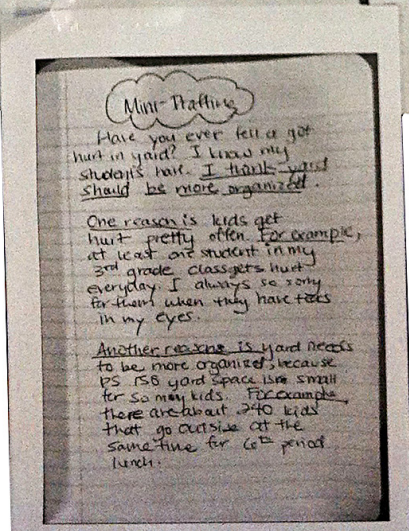 Mini-Drafting
Have you ever fell a got
hurt in yard? I know my
students have. I think yard
should be more organized.
One reason is kids get
hurt pretty often. For example,
at least one student in my
3rd grade class gets hurt
everyday. I always so sorry
for them when they have
in my eyes.
Another reason is yard needs
to be more organized, because
PS 158 yard space is small
for so many kids. For example
there are about 240 kids
that go outside at the
same time for 6th period
lunch.